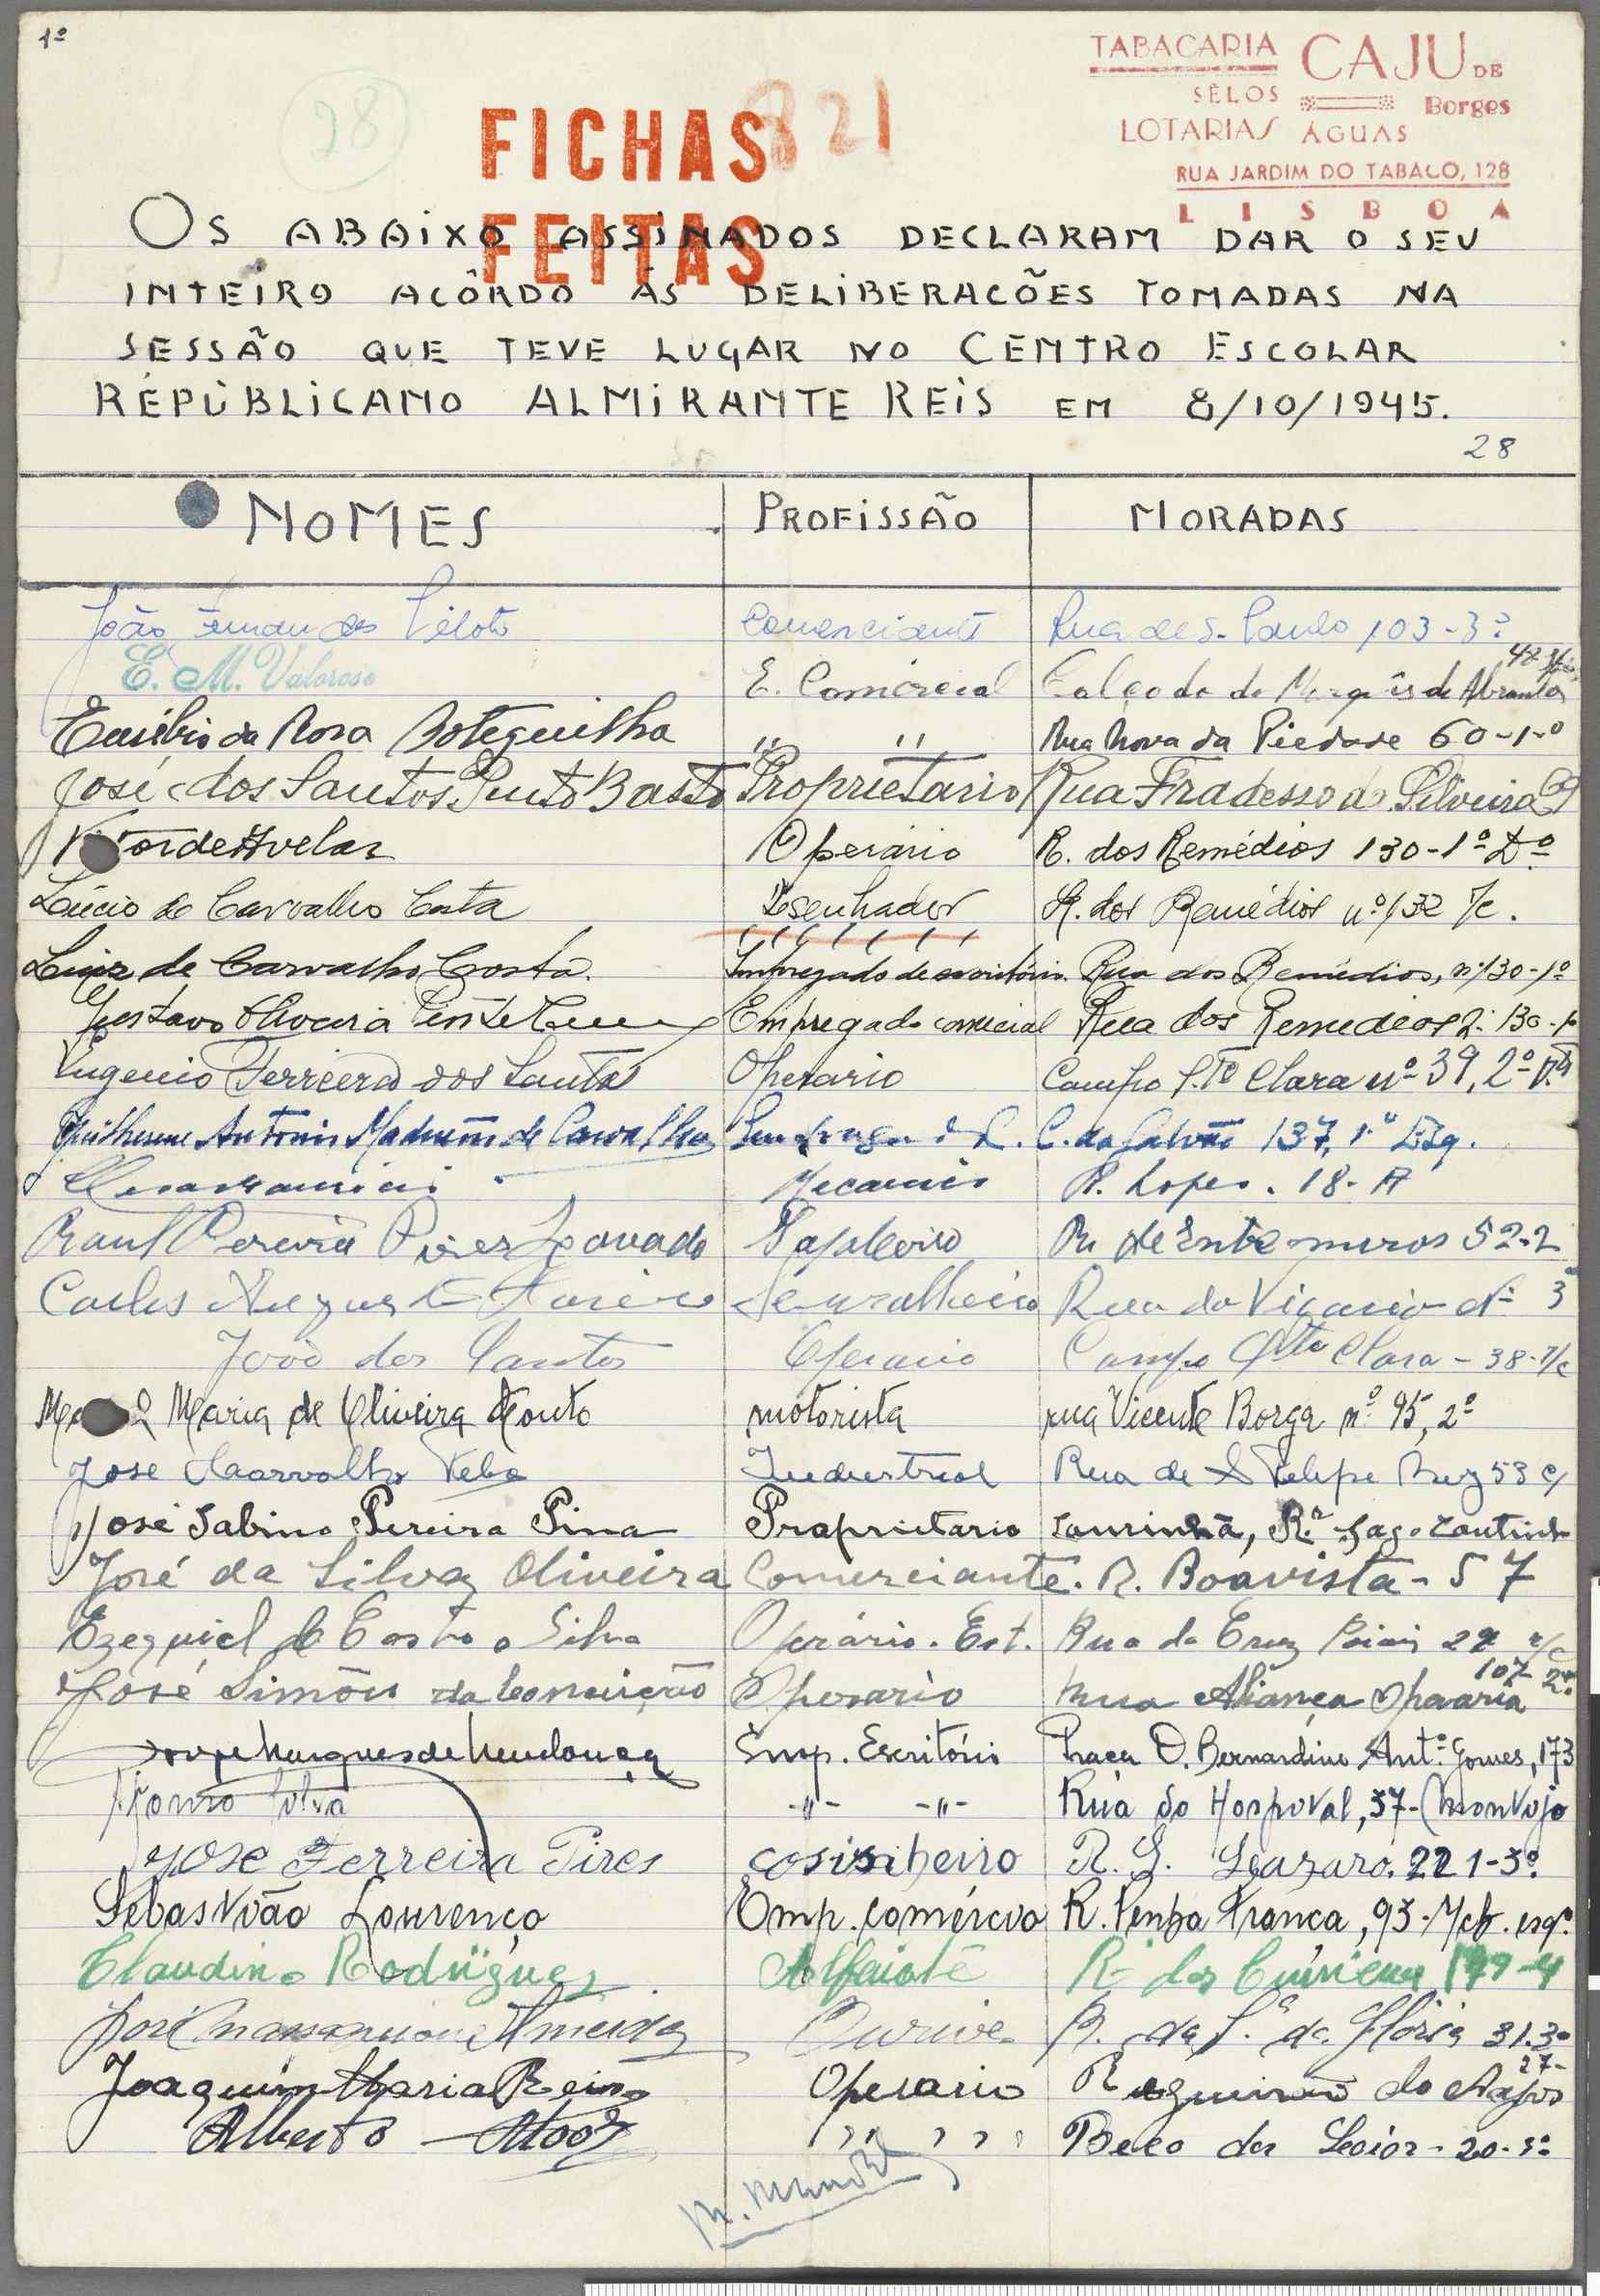 1º
TABACARIA CAJU DE
SÊLOS Borges
LOTARIAS ÁGUAS
RUA JARDIM DO TABACO, 128
LISBOA
28
FICHAS 821
FEITAS
OS ABAIXO ASSINADOS DECLARAM DAR O SEU
INTEIRO ACÔRDO ÀS DELIBERACÕES TOMADAS NA
SESSÃO QUE TEVE LUGAR NO CENTRO ESCOLAR
RÉPÚBLICANO ALMIRANTE REIS EM 8/10/1945.
28
NOMES PROFISSÃO MORADAS
João Fernandes Piloto Comerciante Rua de S. Paulo 103-3º
E. M. Valoroso E. Comércial Calçada do Marquês de Abrantes
Eusébio da Rosa Botequilha " " Rua Nova da Piedade 60-1-º
José dos Santos Pinto Basto Proprietario Rua Fradesso da Silveira
de Avelar Operário R. dos Remédios 130-1º Dº
Lúcio de Carvalho Costa Desenhador R. dos Remédios nº 132 r/c.
Luiz de Carvalho Costa. Empregado de escritório. Rua dos Remédios, nº 130-1º
Gustavo Oliveira Empregado comercial Rua dos Remedios
Eugenio Ferreira dos Santos Operario Campo Sta Clara nº 39, 2º
Guilherme Antonio de Carvalho C. do Galvão 137, 1º Esq.
Mecanico R. Lopes. 18-A
Raul Pereira Pires Lavado Sapateiro R. de Entre-muros 52-2
Carlos Augusto Serralheiro Rua do Vigario Nº 3
João dos Santos Operario Campo Sta Clara - 38-r/c
Maria de Oliveira Couto motorista rua Vicente Borga nº 95, 2º
José Industrial Rua de S Felipe Nery 53
José Sabino Pereira Pina Proprietario Lourinhã, R.ª Gago Coutinho
José da Silva Oliveira Comerciante. R. Boavista - 57
Ezequiel de Castro e Silva Operário. Est. Rua da Cruz Poiais r/c
107 2º
José Simões da Conceição Operario Rua Aliança Operaria
Jorge Marques de Mendonça Emp. Escritório Praça D. Bernardino Antº Gomes, 173
Afonso Silva -"- -"- Rua do Hospital, 37-(Montijo
JOSE Ferreira Pires cosinheiro R. S. Lazaro. 221-3º
Sebastião Lourenço Emp. comércio R. Penha França, 93-r/ch. esqº
Claudino Rodrigues Alfaiate R. dos
José Almeida Ourives R. da S.ª da Glória 31.3º
27-
Joaquim Maria Operario Regueirão dos Anjos
Alberto , , , , Beco dos